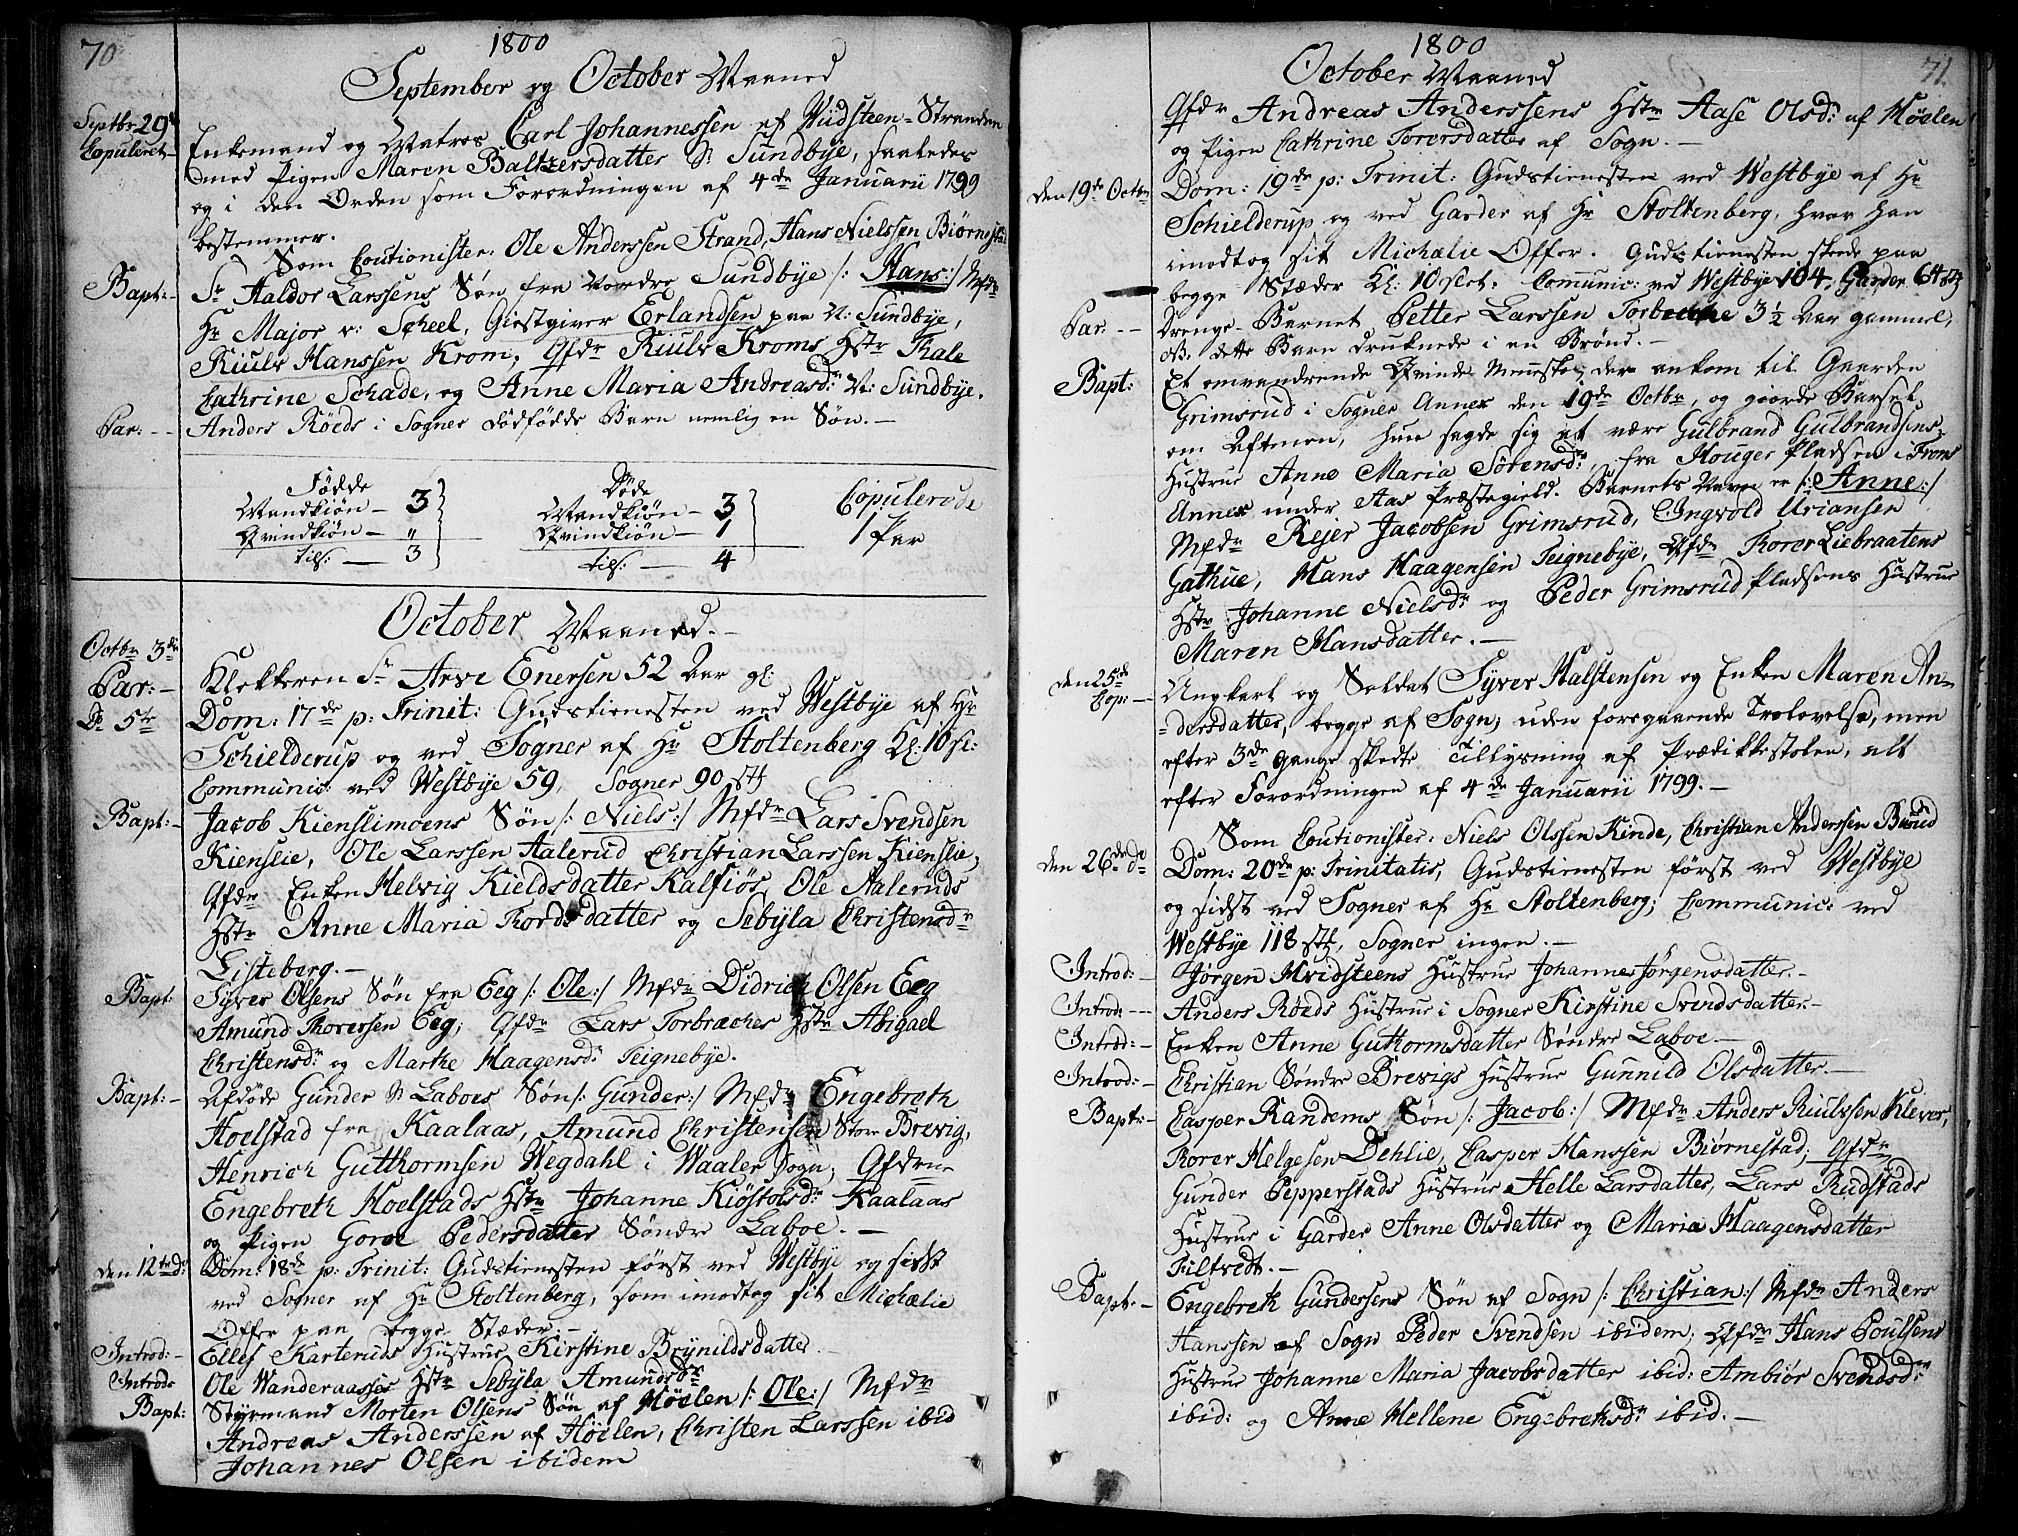 70
1800
September og October Maaned
Septbr 29de
Copuleret
Enkemand og Matros Carl Johannessen af Vüdsteen-Stranden
med Pigen Maren Baltzersdatter N. Sundbÿe, saaledes
og i den Orden som Forordningen af 4de Januarii 1799
bestemmer.
Som Coutionister: Ole Anderssen Strand, Hans Nielssen Biørnestad
Bapt:
Sr Haldor Larssens Søn fra Nordre Sundbÿe /: Hans :/ Mfdr
Hr Major v: Scheel, Giestgiver Erlandsen paa N: Sundbÿe,
Riulv Hanssen Krom, Qfdr Riulv Kroms Hstr Kale
Cathrine Schade, og Anne Maria Andreasdr N: Sundbÿe.
Par:
Anders Röeds i Sogner dødfødde Barn nemlig en Søn.
Fødde
Mandkiøn 3
Qvindkiøn "
tils: 3
Døde
Mandkiøn 3
Qvindkiøn 1
tils: 4
Copulerede
1 Par
October Maaned.
Octbr 3de
Par:
Klokkeren Sr Arve Enersen 52 Aar gl:
Do 5te
Dom: 17de p: Trinit: Gudstienesten ved Westbÿe af Hr
Schielderup og ved Sogner af Hr Stoltenberg Kl: 10 sl:
Communic: ved Westbÿe 59, Sogner 90 stk
Bapt:
Jacob Kienslimoens Søn /: Niels :/ Mfdr Lars Svendsen
Kienslie, Ole Larssen Aalerud Christian Larssen Kienslie,
Qfdr Enken Helvig Kieldsdatter Kalfiøs, Ole Aaleruds
Hstr Anne Maria Thordsdatter og Sebÿla Christensdr
Listeberg.
Bapt:
Sÿver Olsens Søn fra Eeg /: Ole :/ Mfdr Didrich Olsen Eeg
Amund Thoressen Eeg, Qfdr Lars Torbræches Hstr Abigael
Christensdr og Marthe Haagensdr Teignebÿe.
Bapt:
Afdøde Gunder N Laboes Søn /: Gunder :/ Mfdr Engebreth
Hoelstad fra Kaalaas, Amund Christensen Store Brevig,
Henrich Gutthormsen Wegdahl i Waaler Sogn, Qfdrne
Engebreth Hoelstads Hstr Johanne Kiøstolsdr Kaalaas
og Pigen Goroe Pedersdatter Søndre Laboe.
den 12te do
Dom: 18de p: Trinit: Gudstienesten først ved Westbÿe og sidst
ved Sogner af Hr Stoltenberg, som imodtog sit Michælie
Offer paa begge Stæder.
Introd:
Ellef Karteruds Hustrue Kirstine Brÿnildsdatter.
Introd:
Ole Wanderaasses Hstr Sebÿla Amundsdr
Bapt:
Stÿrmand Morten Olsens Søn af Höelen /: Ole :/ Mfdr
Andreas Anderssen af Høelen, Christen Larssen ibid
Johannes Olsen ibidem
1800
71.
October Maaned
Qfdr Andreas Anderssens Hstr Aase Olsdr af Höelen
og Pigen Cathrine Torersdatter af Sogn.
den 19de Octbr
Dom: 19de p: Trinit: Gudstienesten ved Westbÿe af Hr
Schielderup og ved Garder af Hr Stoltenberg, hvor han
imodtog sit Michælie Offer. Gudstienesten skede paa
begge Stæder Kl: 10 slet. Communic: ved Westbÿe 104, Garder 64 stk
Par:
Drenge-Barnet Petter Larssen Torbreche 3½ Aar gammel,
NB: dette Barn druknede i en Brønd.
Bapt:
Et omvandrende Qvinde-Menneske, der ankom til Gaarden
Grimsrud i Sogner Annex den 19de Octbr, og giorde Barsel
om Aftenen, hun sagde sig at være Gulbrand Gulbrandsens
Hustrue Anne Maria Sörensdr, fra Houger Pladsen i Frons
Annex under Aas Præstegield. Barnets Navn er /: Anne :/
Mfdr Rejer Jacobsen Grimsrud, Ingvold Urianssen
Gathue, Hans Haagensen Teignebÿe, Qfdr Thorer Liebraatens
Hstr Johanne Nielsdr og Peder Grimsrud Pladsens Hustrue
Maren Hansdatter.
den 25de
Cop:
Ungkarl og Soldat Sÿver Halstensen og Enken Maren An-
-dersdatter, begge af Sogn, uden foregaaende Trolovelse, men
efter 3de gange skedte Tillÿsning af Prædikkestolen, alt
efter Forordningen af 4de Januarii 1799.
Som Coutionister: Niels Olssen Kinde, Christian Anderssen Burud
den 26de do
Dom: 20de p: Trinitatis, Gudstienesten først ved Westbÿe
og sidst ved Sogner af Hr Stoltenberg; Communic: ved
Westbÿe 118 stk, Sogner ingen.
Introd:
Jørgen Hvidsteens Hustrue Johanne Jørgensdatter.
Introd:
Anders Röeds Hustrue i Sogner Kirstine Svendsdatter.
Introd:
Enken Anne Guthormsdatter Søndre Laboe.
Introd:
Christian Søndre Brevigs Hustrue Gunnild Olsdatter.
Bapt:
Casper Randems Søn /: Jacob :/ Mfdr Anders Riulvssen Klever,
Thorer Helgesen Dehlie, Casper Hanssen Biørnestad; Qfdr
Gunder Pepperstads Hustrue Helle Larsdatter, Lars Rudstads
Hustrue i Garder Anne Olsdatter og Maria Haagensdatter
Filtvedt.
Bapt:
Engebreth Gunderssens Søn af Sogn /: Christian :/ Mfdr Anders
Hanssen af Sogn Peder Svendsen ibidem; Qfdr Hans Poulsens
Hustrue Johanne Maria Jacobsdatter ibid: Ambiør Svendsdr
ibid: og Anne Hellene Engebrethsdr ibid.